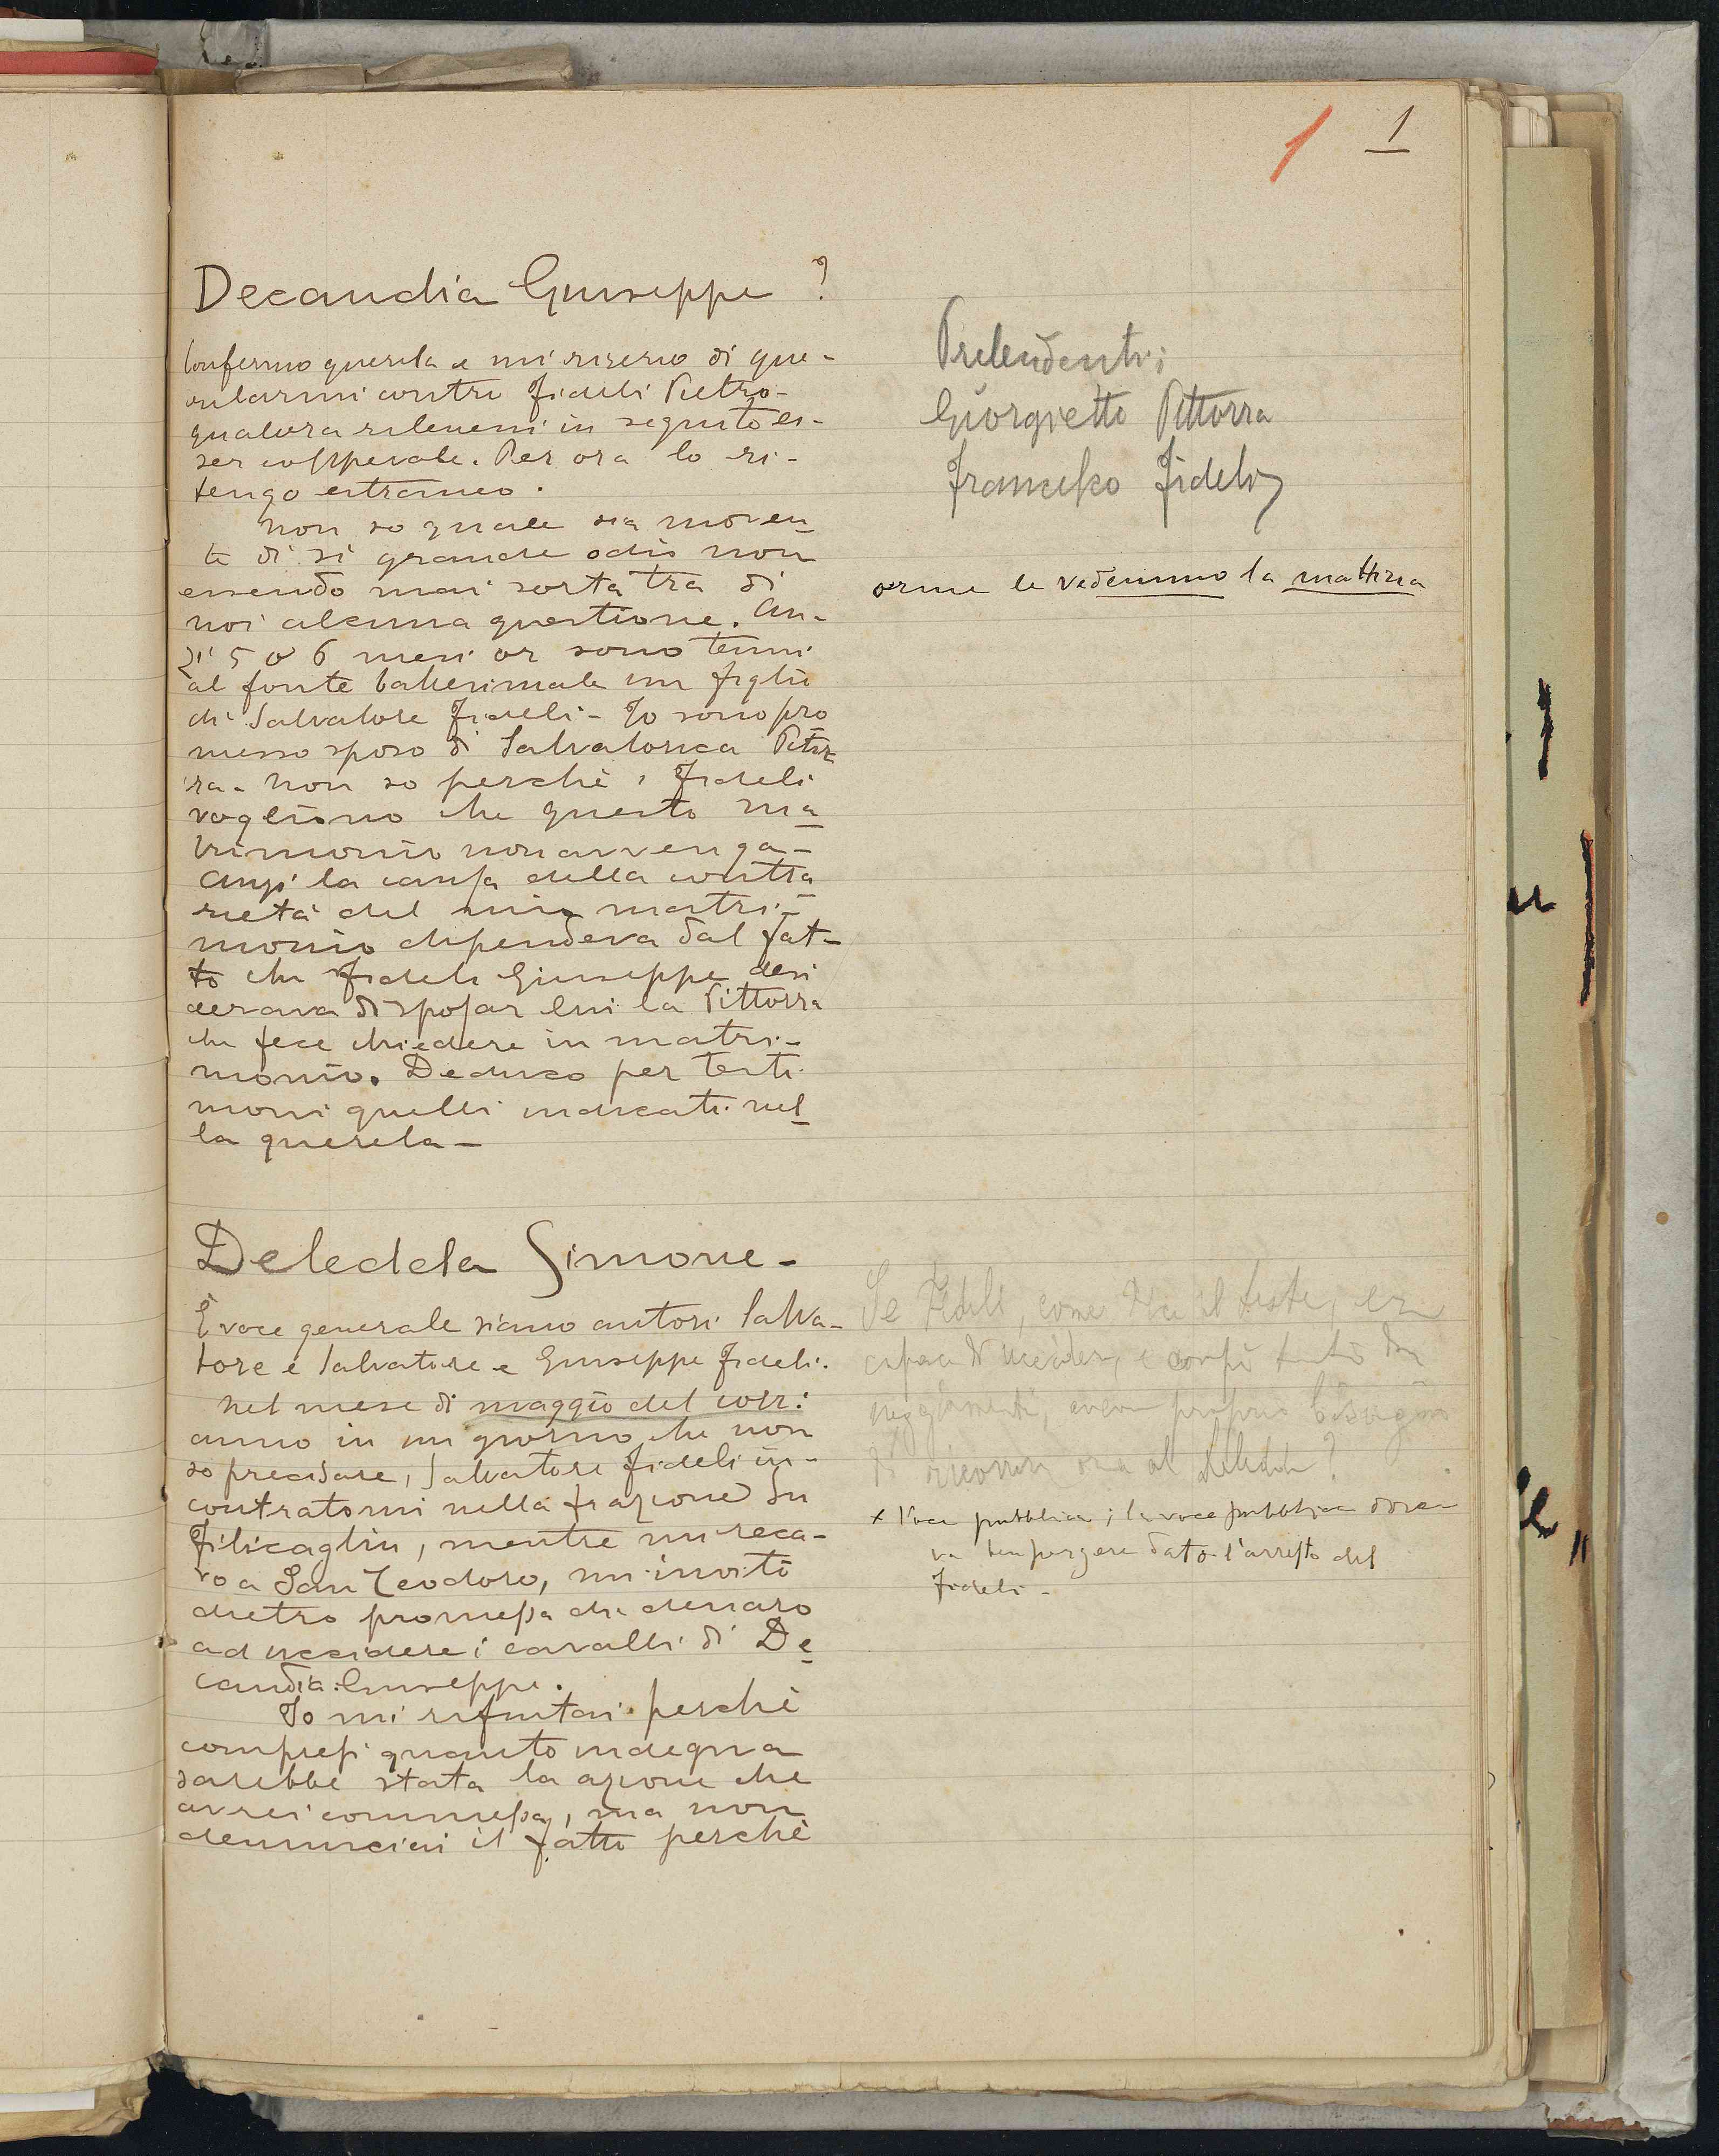 1 1
Decandia Giuseppe ?
Confermo querela e mi riservo di que-
relarmi contro Fideli Pietro-
qualora rilevassi in seguito es-
ser colpevole. Per ora lo ri-
tengo estraneo.
Non so quale sia moven-
te di si grande odio non
essendo mai sorta tra di
noi alcuna questione. An-
zi 5 o 6 mesi or sono tenni
al fonte battesimale un figlio
di Salvatore Fideli - Io sono pro
messo sposo di Salvatorica Pittor
ra - Non so perchè i Fideli
vogliono che questo ma
trimonio non avvenga -
Anzi la causa della contra
rietà del mio matri-
monio dipendeva dal fat-
to che Fideli Giuseppe desi
derava di sposar lui la Pittorra
che fece chiedere in matri-
monio. Deduco per testi
moni quelli indicati nel
la querela -
Deledda Simone -
È voce generale siano autori Salva-
tore e Salvatore e Giuseppe Fideli.
Nel mese di maggio del corr:
anno in un giorno che non
so precisare, Salvatore Fideli in-
contratomi nella frazione Su
Filicagliu, mentre mi reca-
vo a San Teodoro, mi invitò
dietro promessa di denaro
ad uccidere i cavalli di De
candia Giuseppe.
Io mi rifiutai perchè
compresi quanto indegna
sarebbe stata la azione che
avrei commessa, ma non
denunciai il fatto perchè
Pretendenti:
Giorgietto Pittorra
Francesco Fideli
orme le vedemmo la mattina
Se Fideli, come dice il teste, era
capace di uccidere, e compì tutti i
aveva proprio bisogno
di ricorrere ora al Deledda?
x Voce pubblica; la voce pubblica dove
va dato l'arresto del
Fideli -